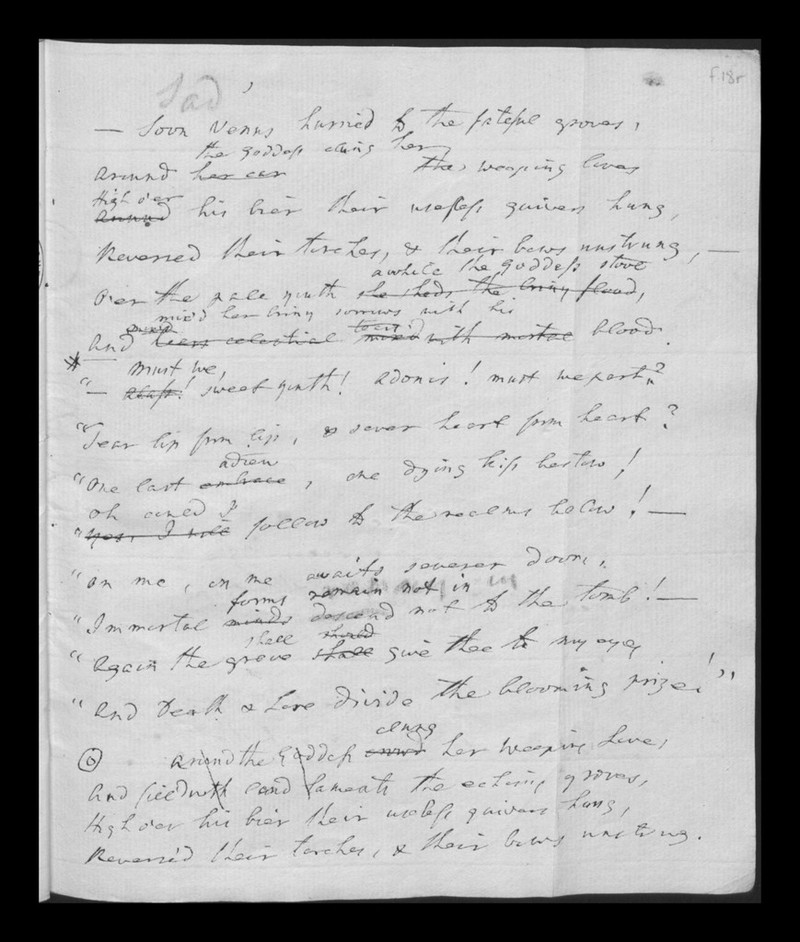 f.18r
Sad
— Soon Venus hurried to the fateful groves,
the Goddess clung her
Around her car the weeping loves
High o'er
Around his bier their useless quivers hung,
Reversed their torches, & their bows unstrung, —
awhile the Goddess stove
O'er the pale youth she sheds the briny flood,
mix'd her briny sorrows with his
And tears celestial mixed with mortal blood.
must we,
"— alass! sweet youth! Adonis! must we part?
"Tear lip from lip, & sever heart from heart?
adieu
"One last embrace, one dying kiss bestow!
oh could I
"Yes, I will follow to the realms below! —
"On me, on me awaits severer doom,
forms remain not in
"Immortal minds descend not to the tomb! —
shall should
"Again the grove shall give thee to my eyes
"And Death & Love divide the blooming prize!"
clung
Around the Goddess crowd her weeping Loves,
And lament the echoing groves,
High o'er his bier their useless quivers hung,
Reversed their torches, & their bows unstrung.